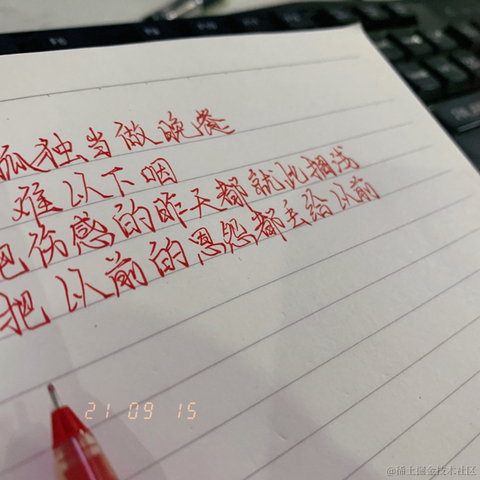 孤独当做晚餐
难以下咽
把伤感的昨天都就此搁浅
把以前的恩怨都丢给从前
21 09 15
@稀土掘金技术社区